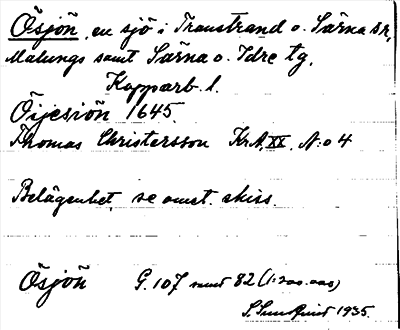 Ösjön, en sjö i Transtrand o. Särna snr,
Malungs samt Särna o. Idre tg,
Kopparb. l.
Öijesiön 1645.
Thomas Christersson KrA, XX, N:o 4
Belägenhet, se omst. skiss.
Ösjön G. 107 samt 82 (1:200.000)
S. Sundquist 1935.